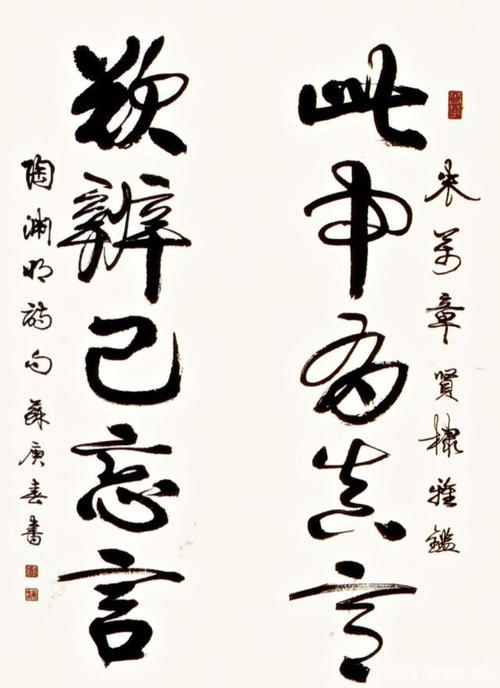 朱萬章賢棣雅鑑
此中有真意
欲辨已忘言
陶淵明詩句 蘇庚春書